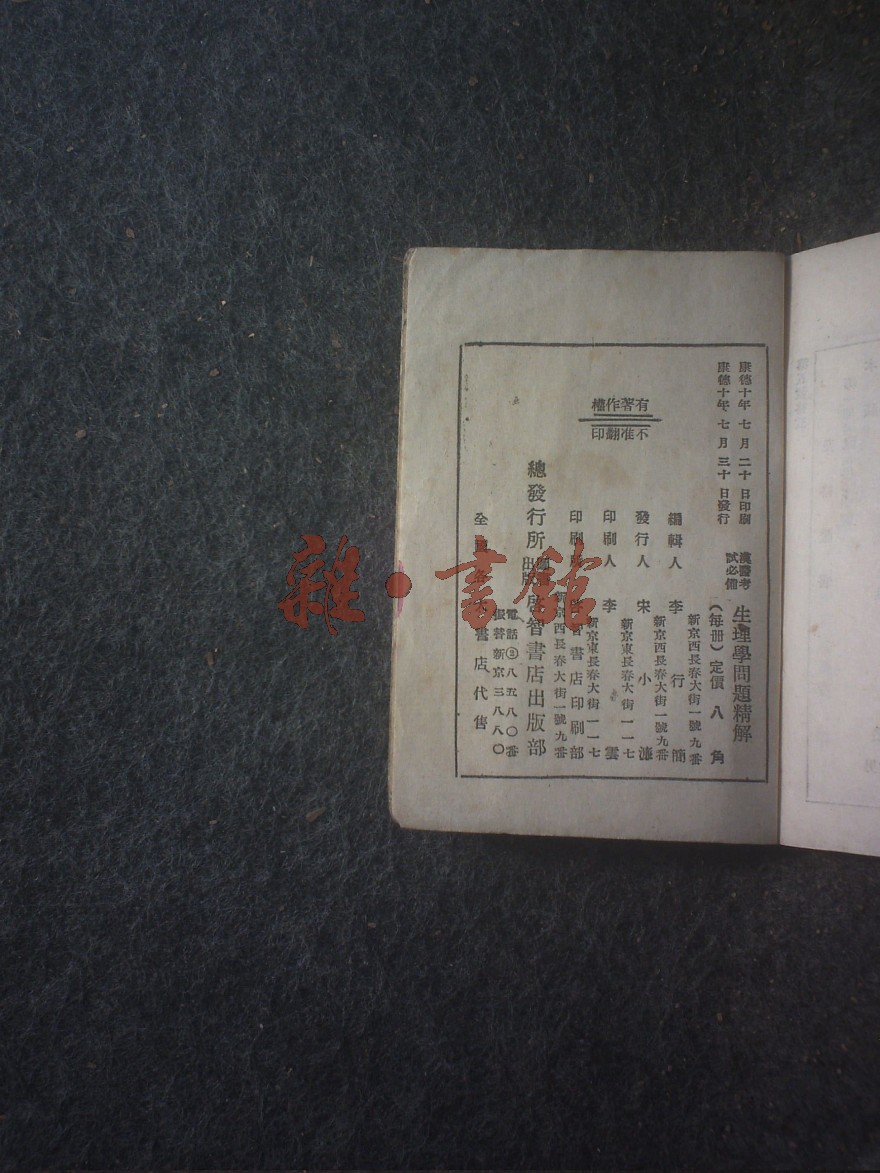 康德十年七月二十日印刷
康德十年七月三十日發行
漢醫考
試必備
生理學問題精解
(每冊)定價八角
新京西長春大街一號九番
編輯人 李行簡
新京西長春大街一號九番
發行人 宋小濂
新京東長春大街一一七
印刷人 李雲
新京東長春大街一一七
印刷 智書店印刷部
新京西長春大街一號九番
有著作權
不准翻印
總發行所 出版 智書店出版部
電話②八五八〇番
振替新京三八八〇
全 各大書店代售
雜·書館